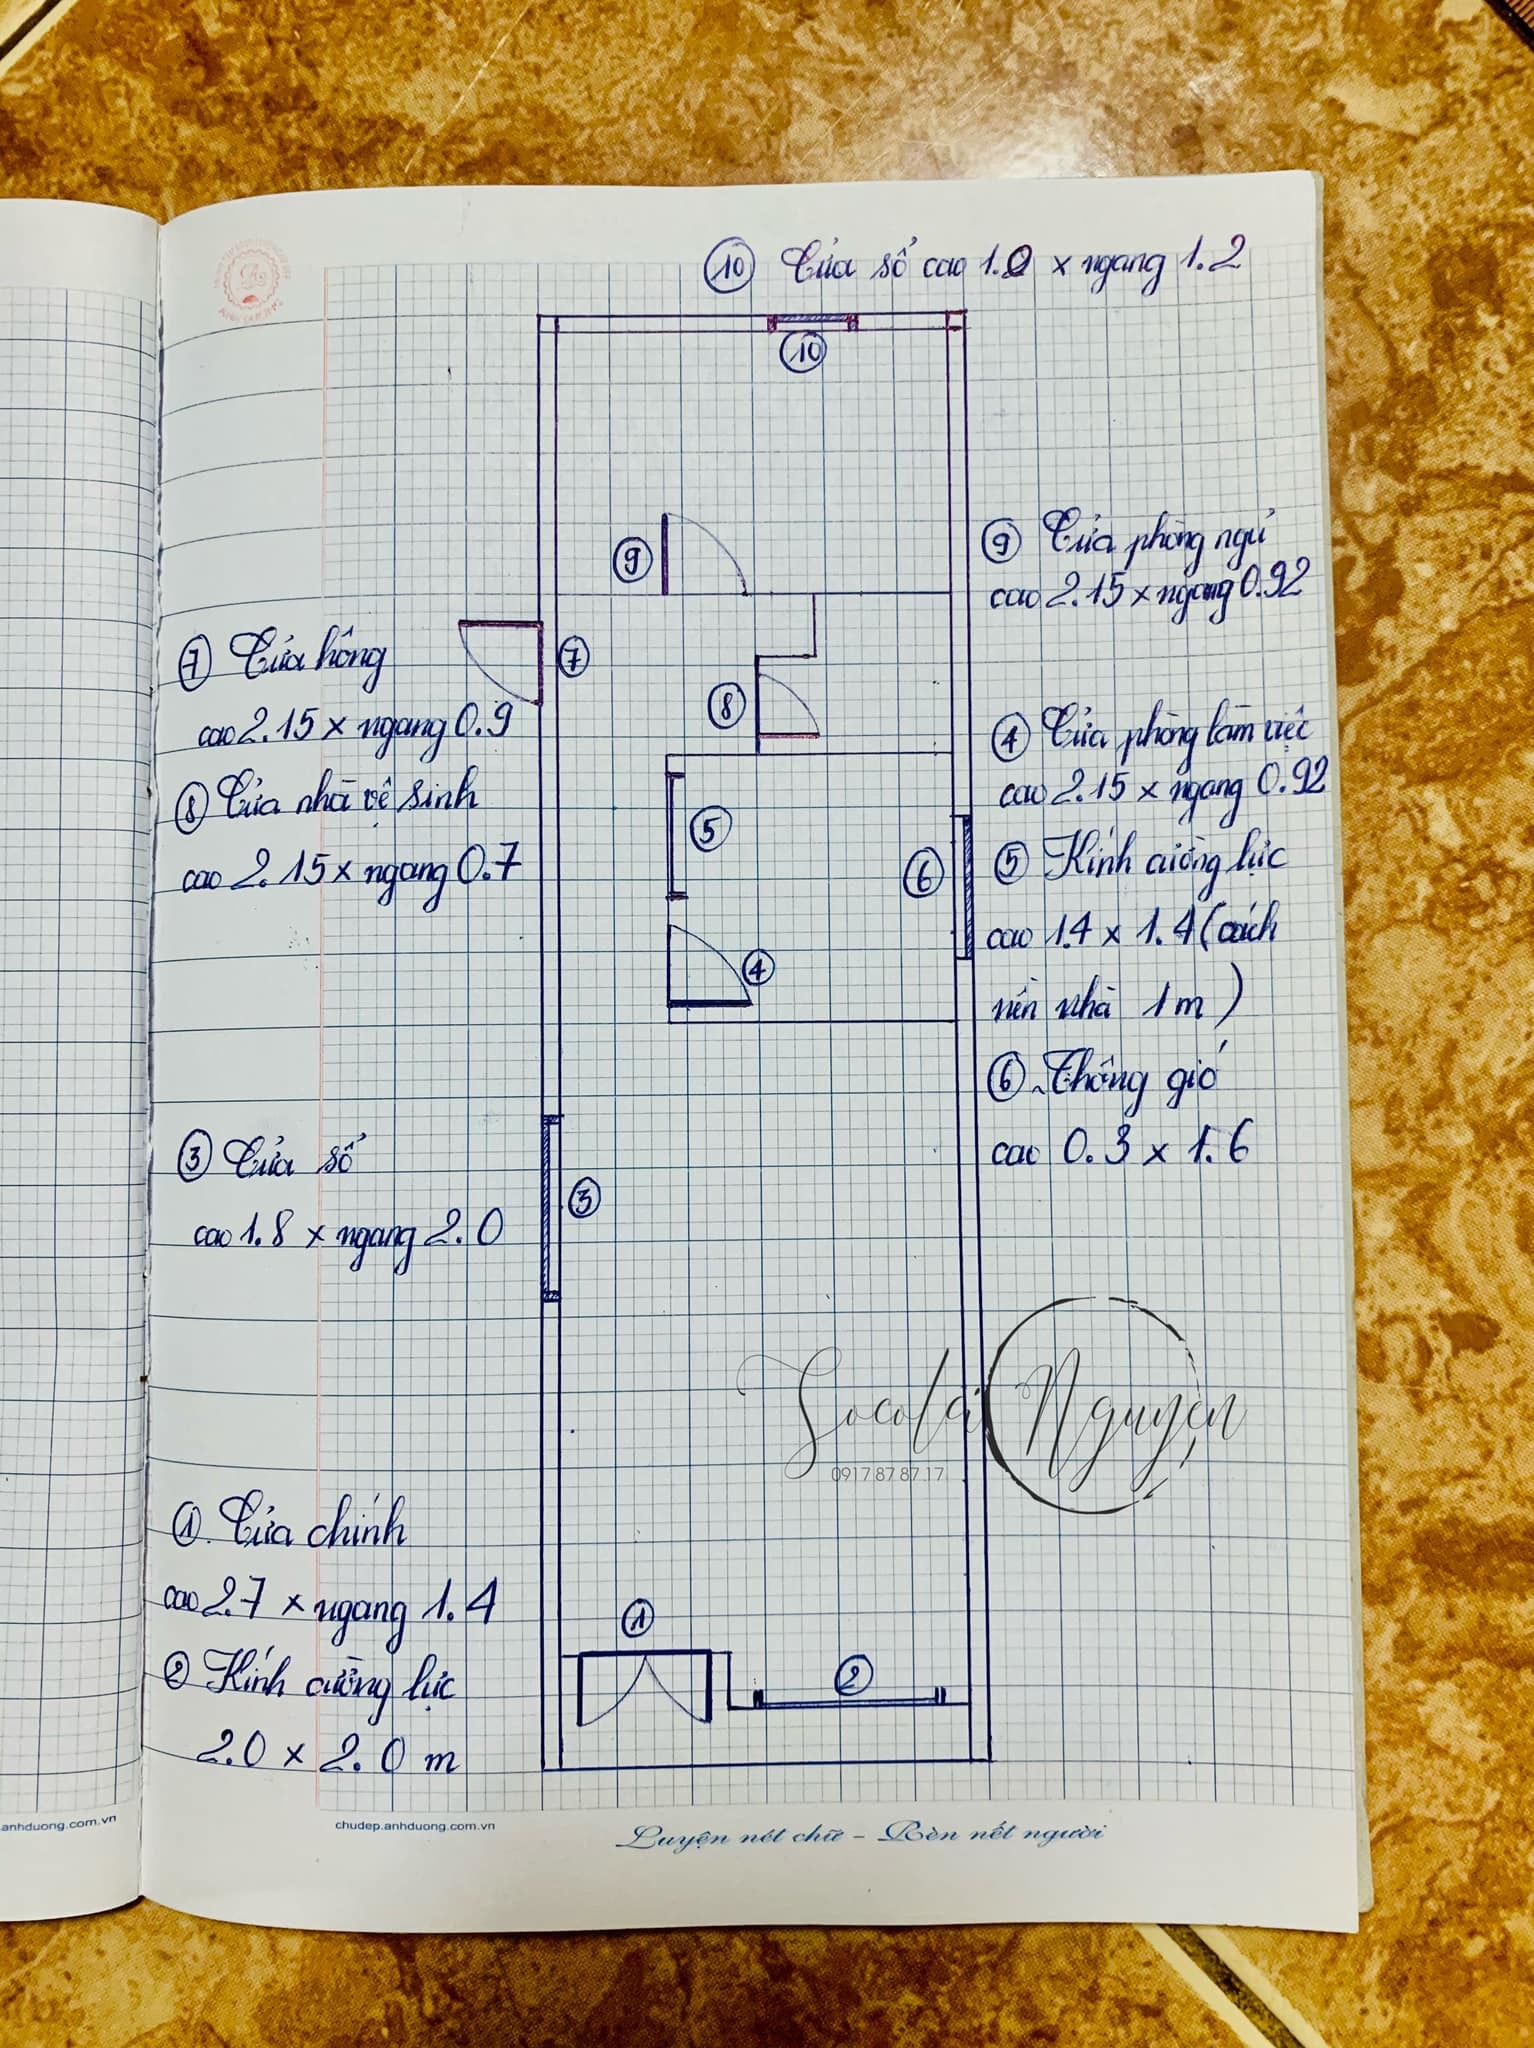 ⑩ Cửa sổ cao 1.2 x ngang 1.2
⑩
⑨
⑨ Cửa phòng ngủ
cao 2.15 x ngang 0.92
⑦ Cửa hông
cao 2.15 x ngang 0.9
⑦
⑧
⑧ Cửa nhà vệ sinh
cao 2.15 x ngang 0.7
④ Cửa phòng làm việc
cao 2.15 x ngang 0.92
⑤
⑥
④
⑤ Kính cường lực
cao 1.4 x 1.4 (cách
nền nhà 1m)
⑥ Thông gió
cao 0.3 x 1.6
③ Cửa sổ
cao 1.8 x ngang 2.0
③
Socola Nguyễn
0917.87.87.17
① Cửa chính
cao 2.7 x ngang 1.4
② Kính cường lực
2.0 x 2.0 m
①
②
anhduong.com.vn
chudep.anhduong.com.vn
Luyện nét chữ - Rèn nết người